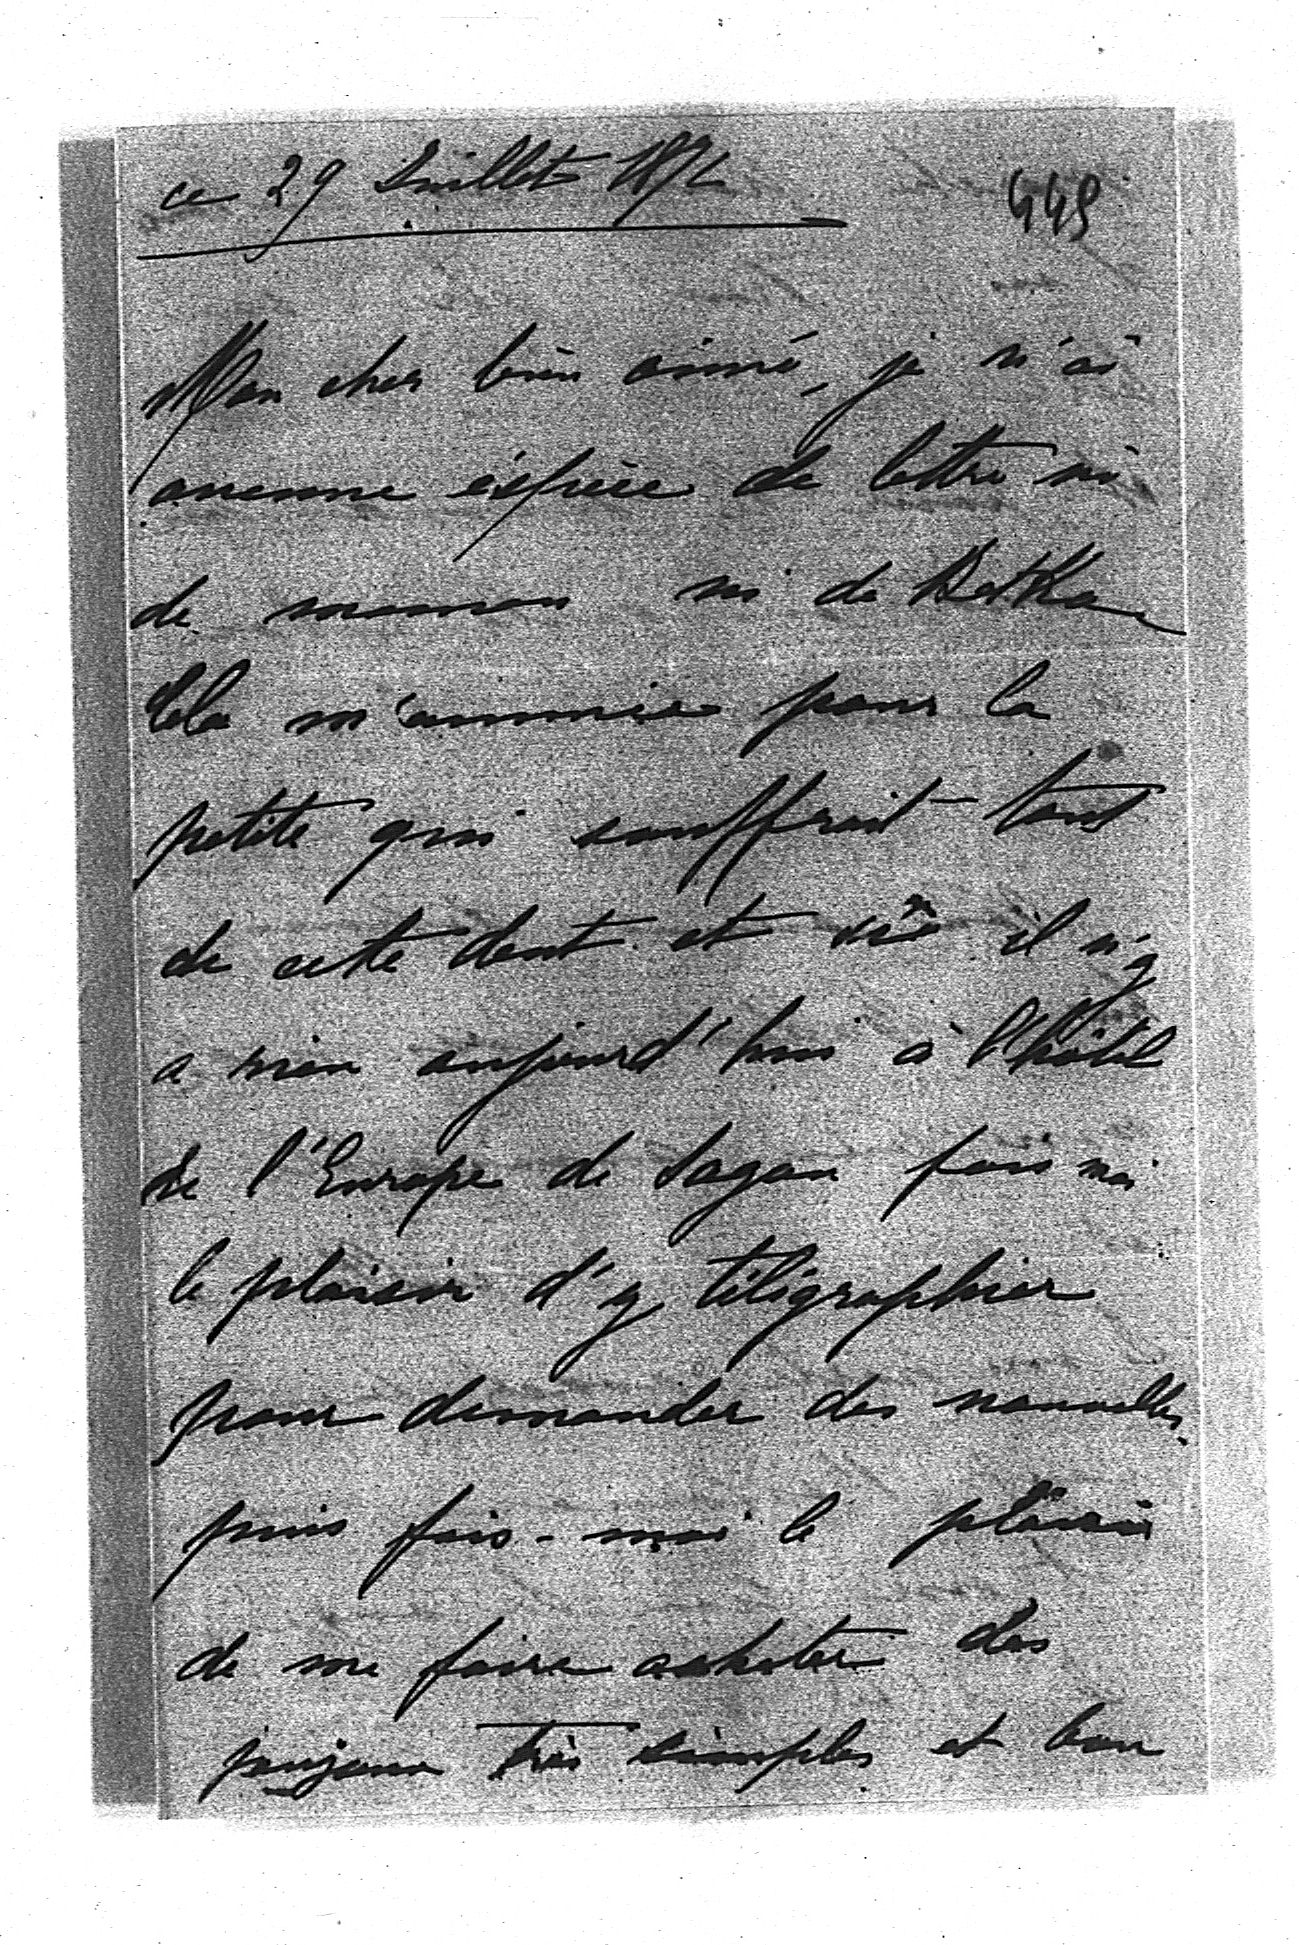 ce 29 Juillet 187
449
Mon cher bien aimé, je n'ai
aucune éspèce de lettre ni
de maman ni de Betka
Cela m'ennuie pour la
petite qui souffrait tant
de cette dent et s'il n'y
a rien aujourd'hui à l'hôtel
de l'Europe de Sagan fais moi
le plaisir d'y téligraphier
pour demander des nouvelles.
puis fais-moi le plaisir
de me faire acheter des
joujoux très simples et bon